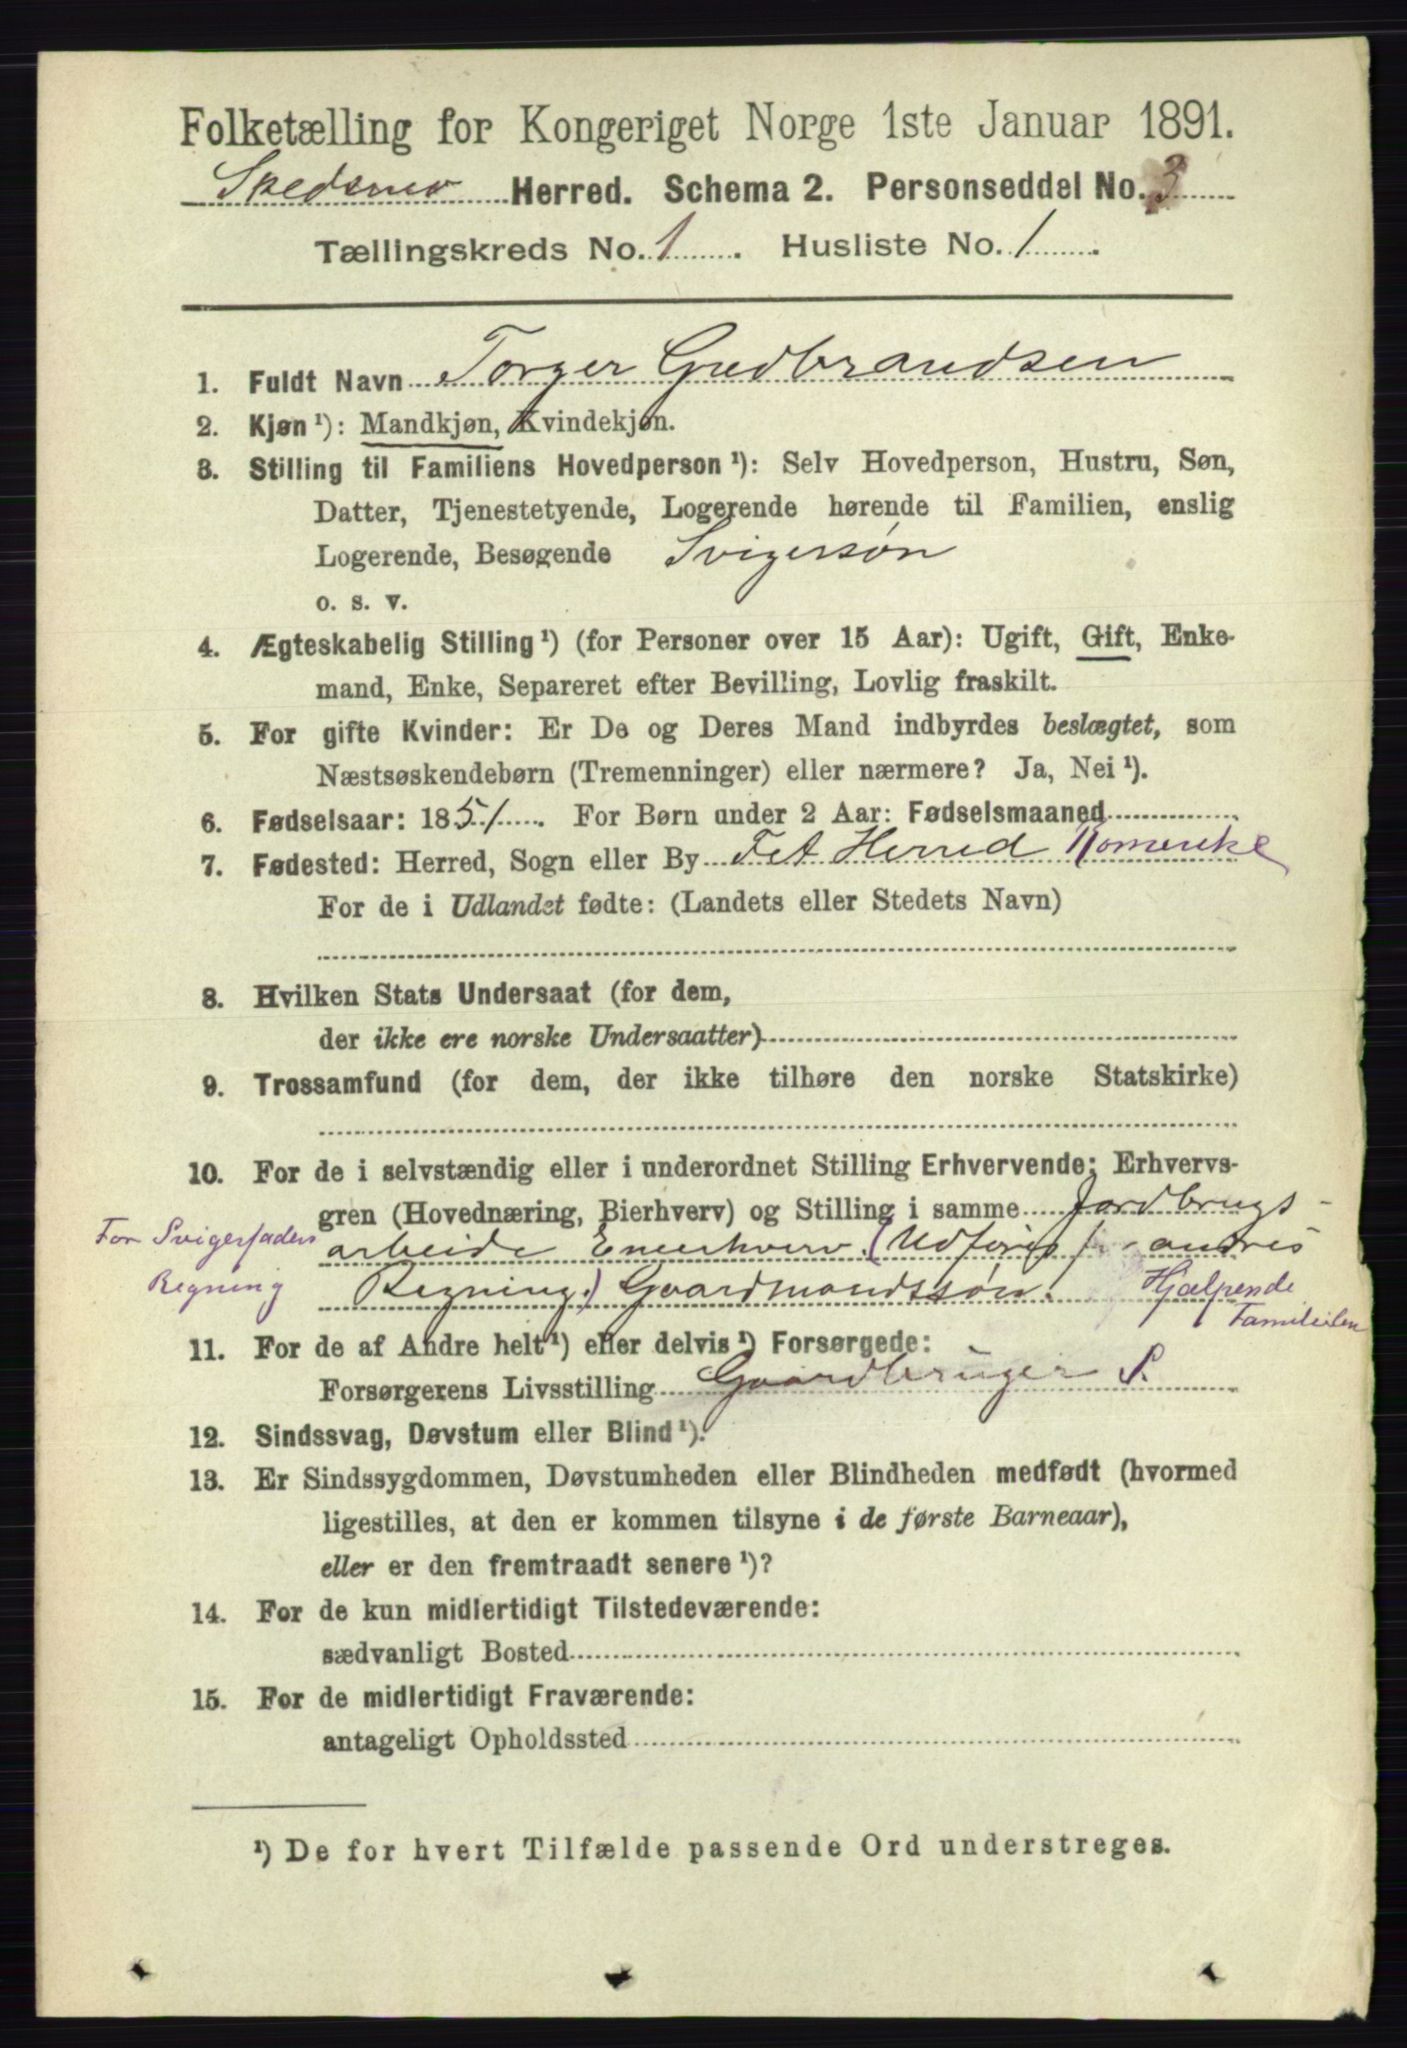 Folketælling for Kongeriget Norge 1ste Januar 1891.
Skedsmo Herred. Schema 2. Personseddel No. 3
Tællingskreds No. 1. Husliste No. 1.
1. Fuldt Navn Torger Gudbrandsen
2. Kjøn ¹): Mandkjøn, Kvindekjøn.
3. Stilling til Familiens Hovedperson ¹): Selv Hovedperson, Hustru, Søn,
Datter, Tjenestetyende, Logerende hørende til Familien, enslig
Logerende, Besøgende Svigersøn
o. s. v.
4. Ægteskabelig Stilling ¹) (for Personer over 15 Aar): Ugift, Gift, Enke-
mand, Enke, Separeret efter Bevilling, Lovlig fraskilt.
5. For gifte Kvinder: Er De og Deres Mand indbyrdes beslægtet, som
Næstsøskendebørn (Tremenninger) eller nærmere? Ja, Nei ¹).
6. Fødselsaar: 1851. For Børn under 2 Aar: Fødselsmaaned
7. Fødested: Herred, Sogn eller By Fet Herred Romerike
For de i Udlandet fødte: (Landets eller Stedets Navn)
8. Hvilken Stats Undersaat (for dem,
der ikke ere norske Undersaatter)
9. Trossamfund (for dem, der ikke tilhøre den norske Statskirke)
10. For de i selvstændig eller i underordnet Stilling Erhvervende: Erhvervs-
gren (Hovednæring, Bierhverv) og Stilling i samme Jordbrugs-
For Svigerfaders arbeide Eneerhverv. (Udføres for andres
Regning Regning.) Gaardmandssøn. Hjælpende
Familielem
11. For de af Andre helt ¹) eller delvis ¹) Forsørgede:
Forsørgerens Livsstilling Gaardbruger S.
12. Sindssvag, Døvstum eller Blind ¹).
13. Er Sindssygdommen, Døvstumheden eller Blindheden medfødt (hvormed
ligestilles, at den er kommen tilsyne i de første Barneaar),
eller er den fremtraadt senere ¹)?
14. For de kun midlertidigt Tilstedeværende:
sædvanligt Bosted
15. For de midlertidigt Fraværende:
antageligt Opholdssted
¹) De for hvert Tilfælde passende Ord understreges.